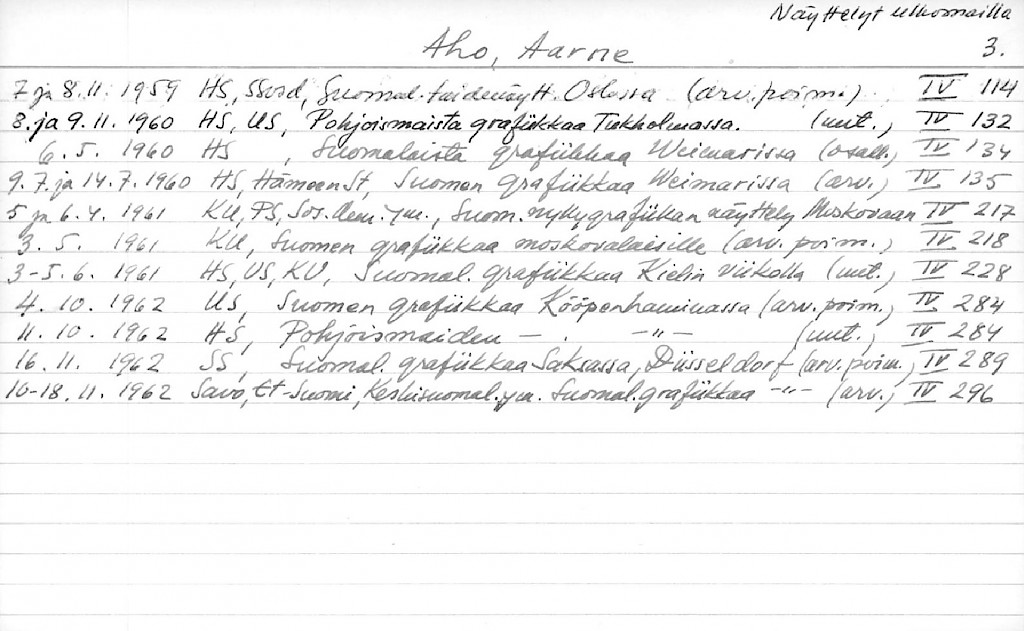 Näyttelyt ulkomailla
Aho, Aarne 3.
7 ja 8.11. 1959 HS, SSosd, Suomal. taidenäytt. Oslossa (arv. poim.) IV 114
8. ja 9.11. 1960 HS, US, Pohjoismaista grafiikkaa Tukholmassa. (uut.) IV 132
6.5. 1960 HS , Suomalaista grafiikkaa Weimarissa (osall.) IV 134
9.7. ja 14.7. 1960 HS, HämeenSt, Suomen grafiikkaa Weimarissa (arv.) IV 135
5 ja 6.4. 1961 KU, PS, Sos.dem. ym., Suom. nykygrafiikan näyttely Moskovaan IV 217
3.5. 1961 KU, Suomen grafiikkaa moskovalaisille (arv. poim.) IV 218
3-5.6. 1961 HS, US, KU, Suomal. grafiikkaa Kielin viikolla (uut.) IV 228
4.10. 1962 US, Suomen grafiikkaa Kööpenhaminassa (arv. poim.) IV 284
11.10. 1962 HS, Pohjoismaiden — . —"— (uut.) IV 284
16.11. 1962 SS, Suomal. grafiikkaa Saksassa, Düsseldorf (arv. poim.) IV 289
10-18.11. 1962 Savo, Et-Suomi, Keskisuomal. ym. Suomal. grafiikkaa —"— (arv.) IV 296